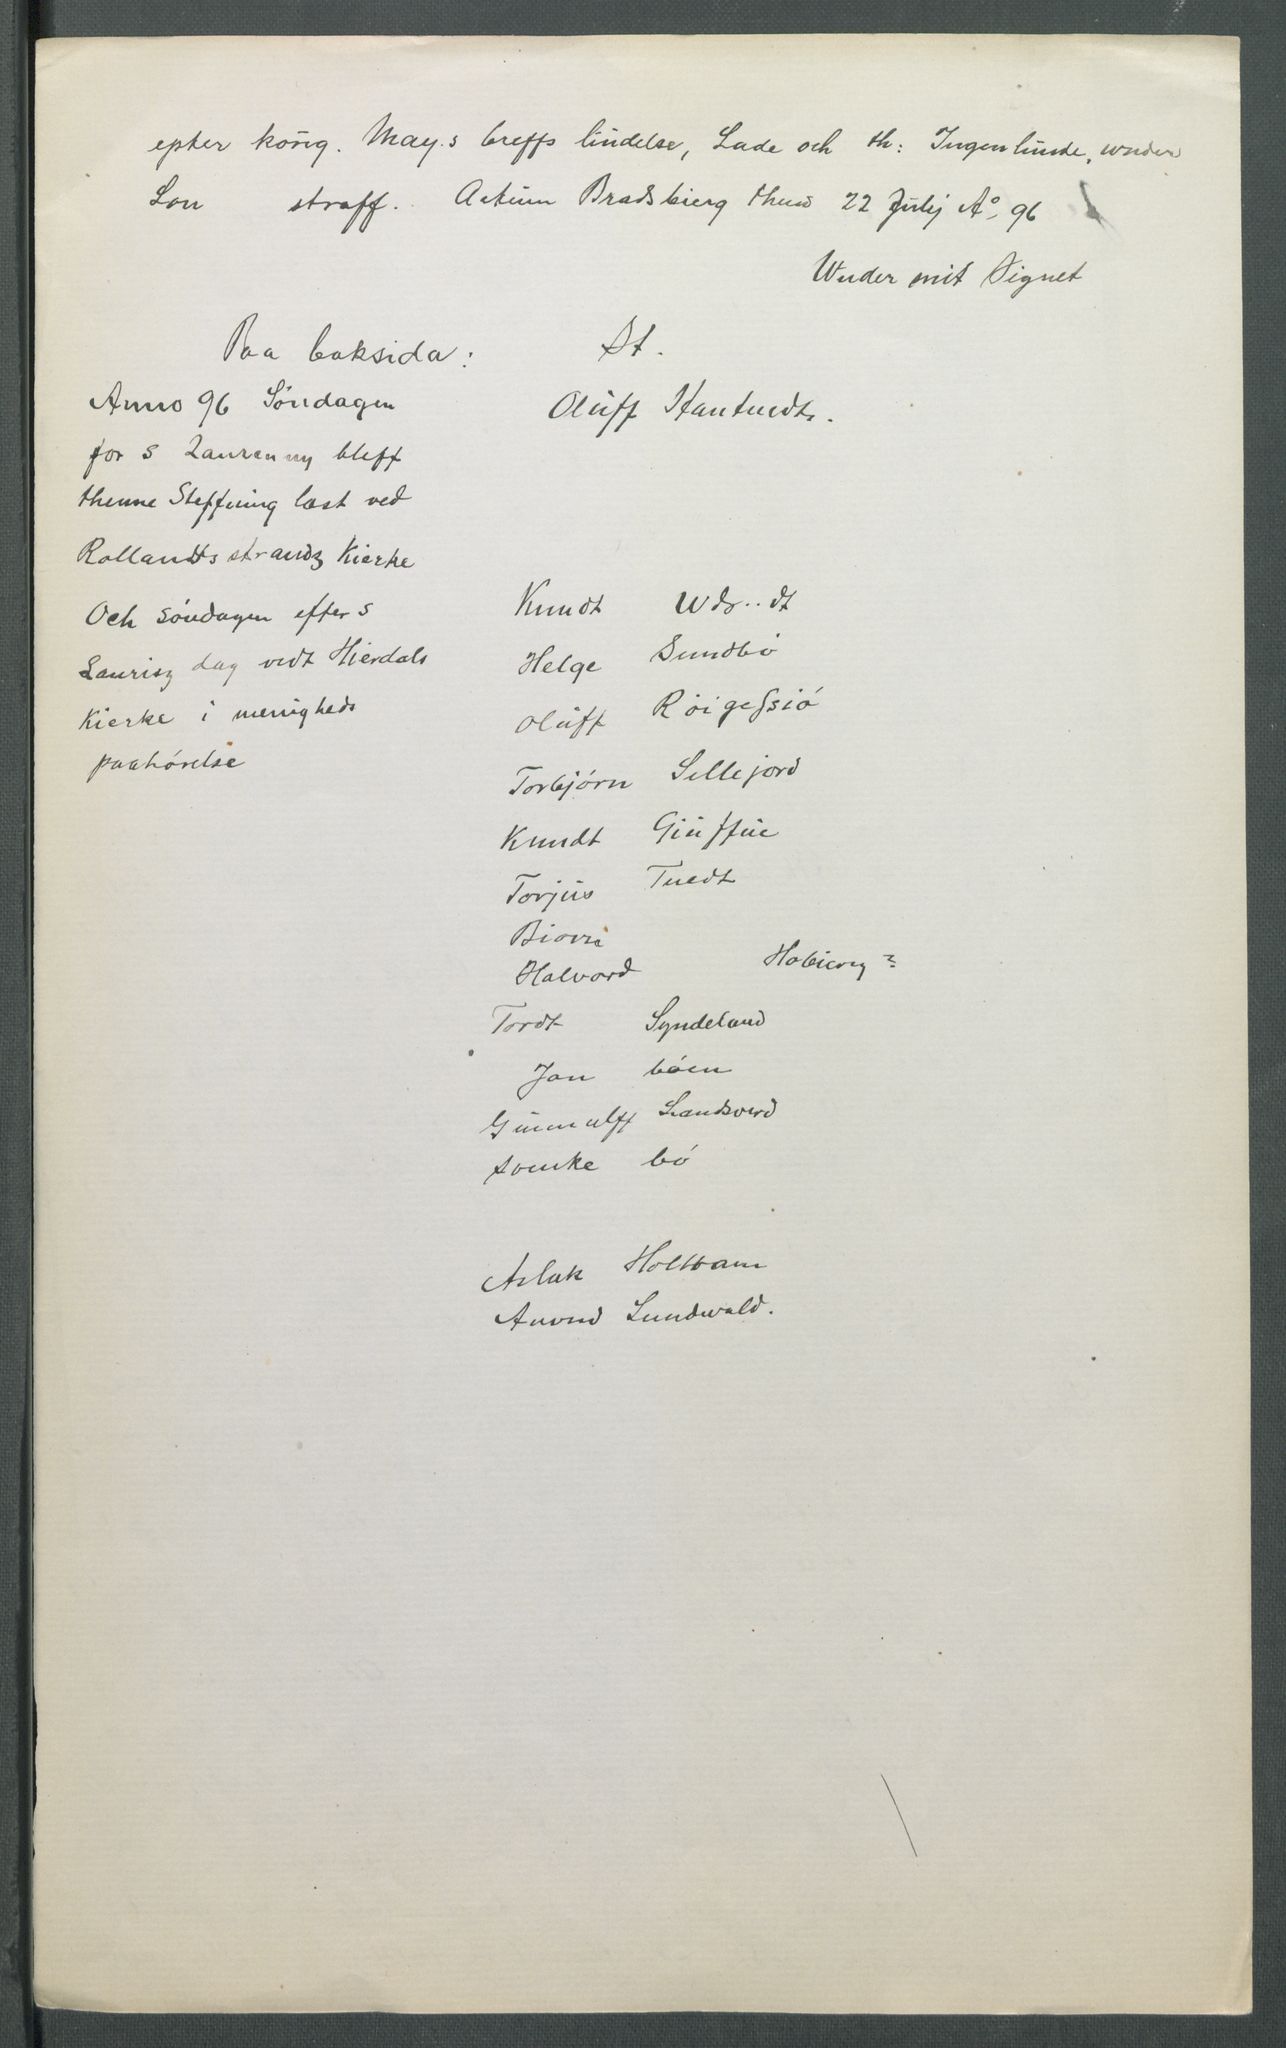 epter könig. May.s breffs lüdelse, Lade och th: Ingenlünde, wnder
Lou straff. Actüm Bradsbierg thend 22 Julij A°. 96
Wnder mit Signet
St.
Olüff
Paa baksida:
Anno 96 Söndagen
for S bleff
thenne Steffning læst ved
Rollandtts strandz Kierke
Och söndagen efter S
Laurisz dag vedt Hierdals
Kierke i menigheds
paahörelse
Knudt Wds..dt
Helge Sundbö
Olüff Röigessiö
Torbjörn Sellejord
Knudt
Torjüs Tuedt
Biorn
Halvord Hobierg?
Tordt Syndeland
Jon böen
Günnulff Landsverd
Suenke bö
Aslak Holtvam
Anund Lundwald.